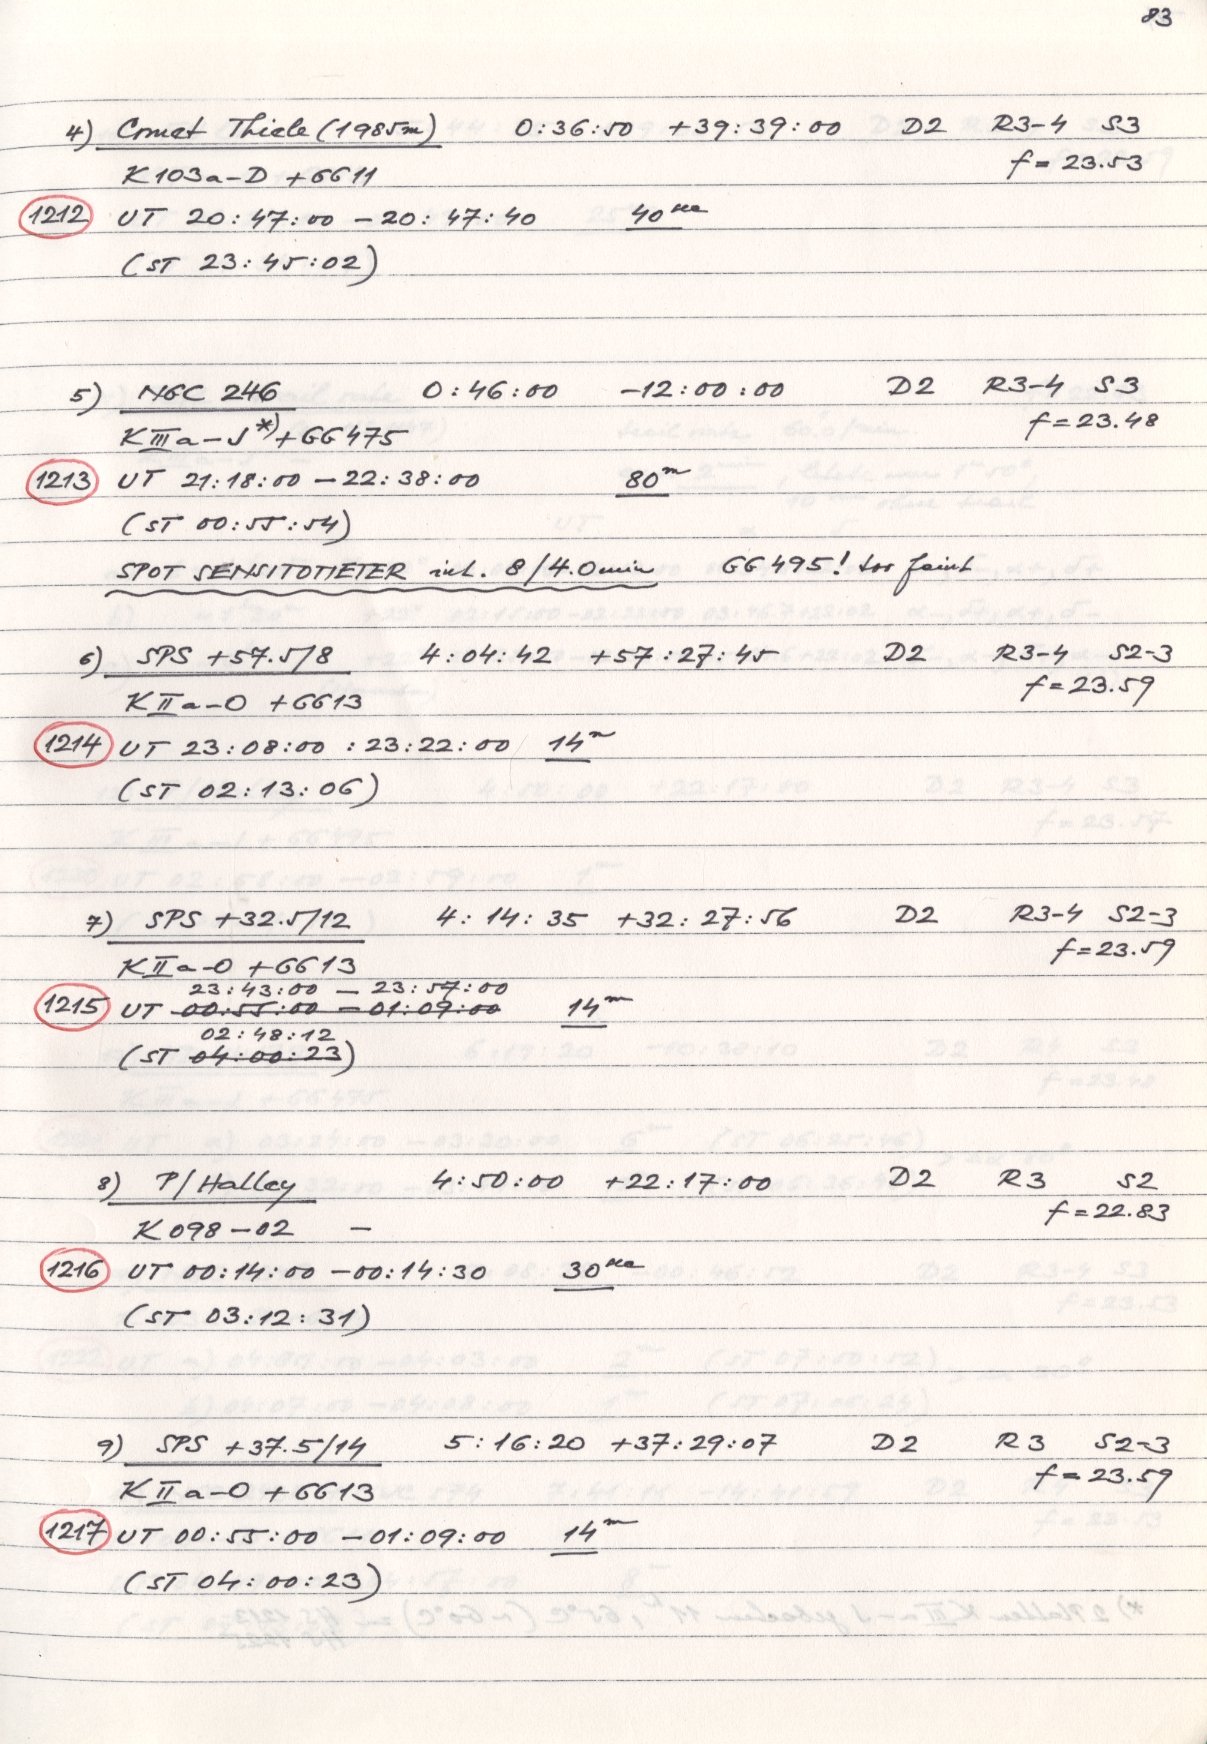 83
4) Comet Thiele (1985m) 0:36:50 +39:39:00 D2 R3-4 S3
f = 23.53
K103a-D + GG11
1212 UT 20:47:00 - 20:47:40 40sec
(ST 23:45:02)
5) NGC 246 0:46:00 -12:00:00 D2 R3-4 S3
f = 23.48
KIIIa-J*) + GG475
1213 UT 21:18:00 - 22:38:00 80m
(ST 00:55:54)
SPOT SENSITOMETER int. 8/4.0min GG495! too faint
6) SPS +57.5/8 4:04:42 +57:27:45 D2 R3-4 S2-3
f = 23.59
KIIa-O + GG13
1214 UT 23:08:00 : 23:22:00 14m
(ST 02:13:06)
7) SPS +32.5/12 4:14:35 +32:27:56 D2 R3-4 S2-3
f = 23.59
KIIa-O + GG13
23:43:00 - 23:57:00
1215 UT 00:55:00 - 01:09:00 14m
02:48:12
(ST 04:00:23)
8) P/Halley 4:50:00 +22:17:00 D2 R3 S2
f = 22.83
K098-02 -
1216 UT 00:14:00 - 00:14:30 30sec
(ST 03:12:31)
9) SPS +37.5/14 5:16:20 +37:29:07 D2 R3 S2-3
f = 23.59
KIIa-O + GG13
1217 UT 00:55:00 - 01:09:00 14m
(ST 04:00:23)